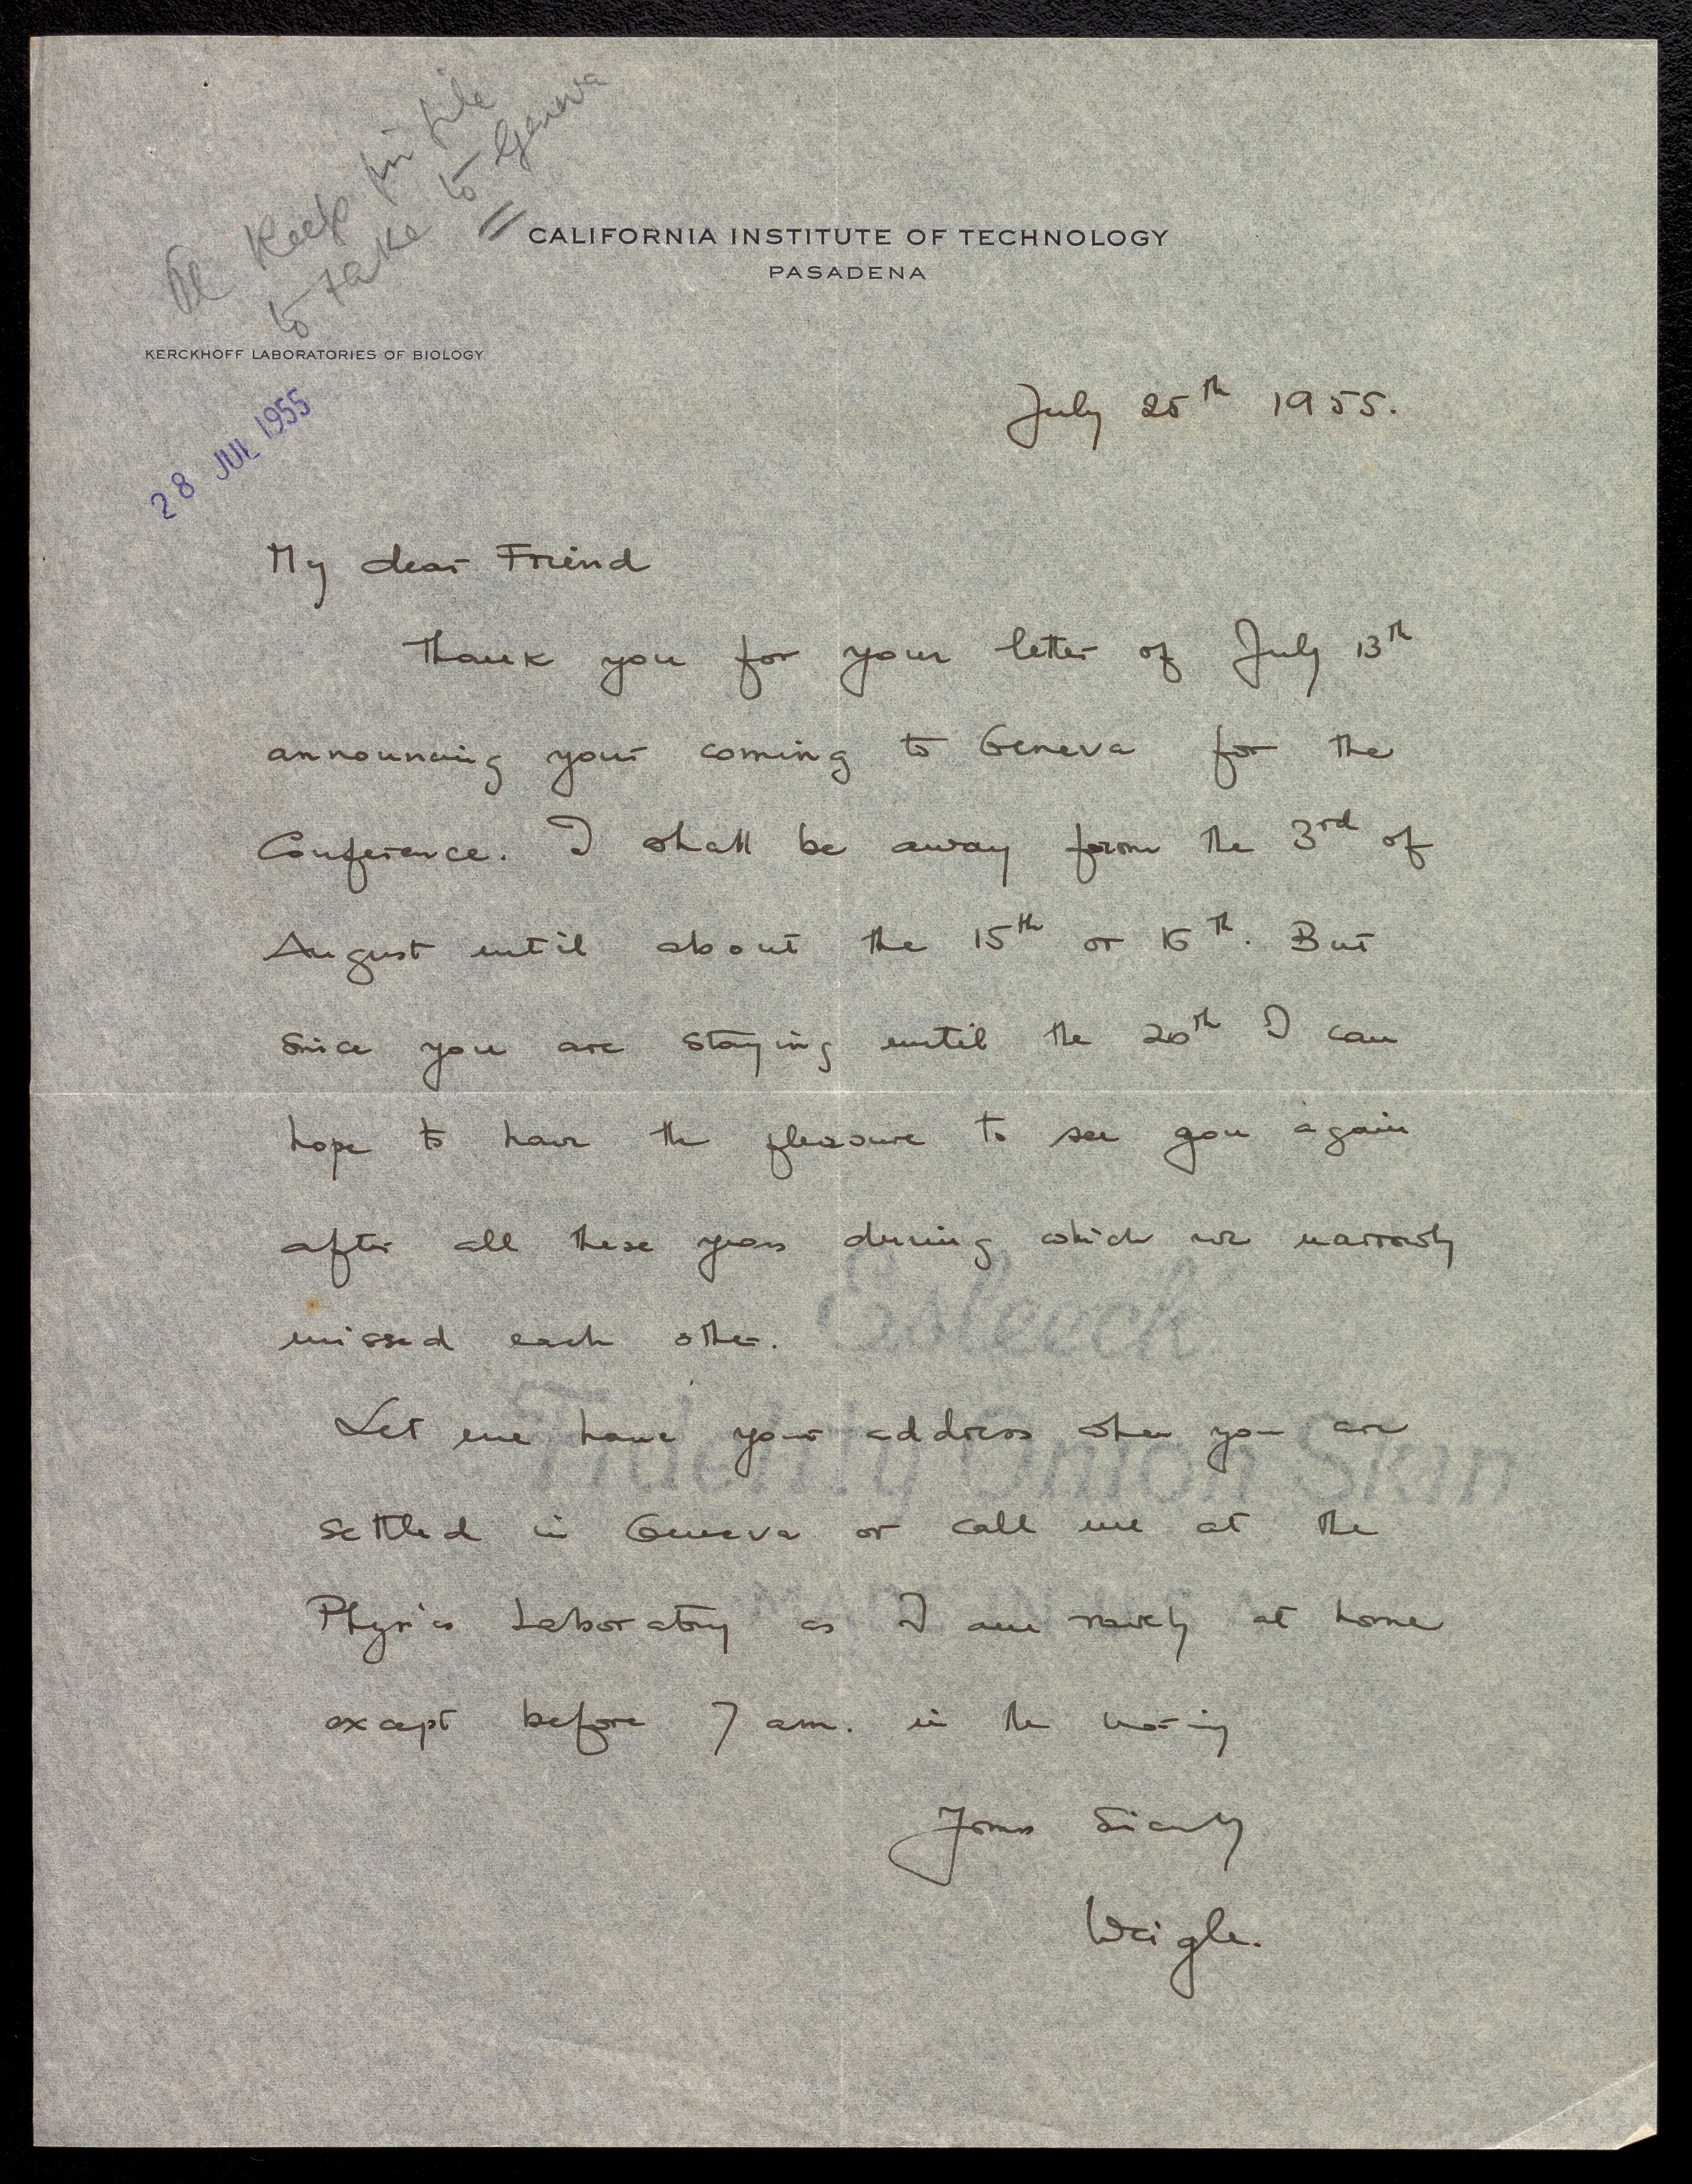 Pl Keep in file
to take to Geneva
CALIFORNIA INSTITUTE OF TECHNOLOGY
PASADENA
KERCKHOFF LABORATORIES OF BIOLOGY
28 JUL 1955
July 25th 1955.
My dear Friend
Thank you for your letter of July 13th
announcing your coming to Geneva for the
Conference. I shall be away from the 3rd of
August until about the 15th or 16th. But
since you are staying until the 20th I can
hope to have the pleasure to see you again
after all these years during which we narrowly
missed each other.
Let me have your address when you are
settled in Geneva or call me at the
Physics Laboratory as I am rarely at home
except before 7 am. in the morning
Yours Sincerely
Weigle.
Esleeck
Fidelity Onion Skin
MADE IN U.S.A.